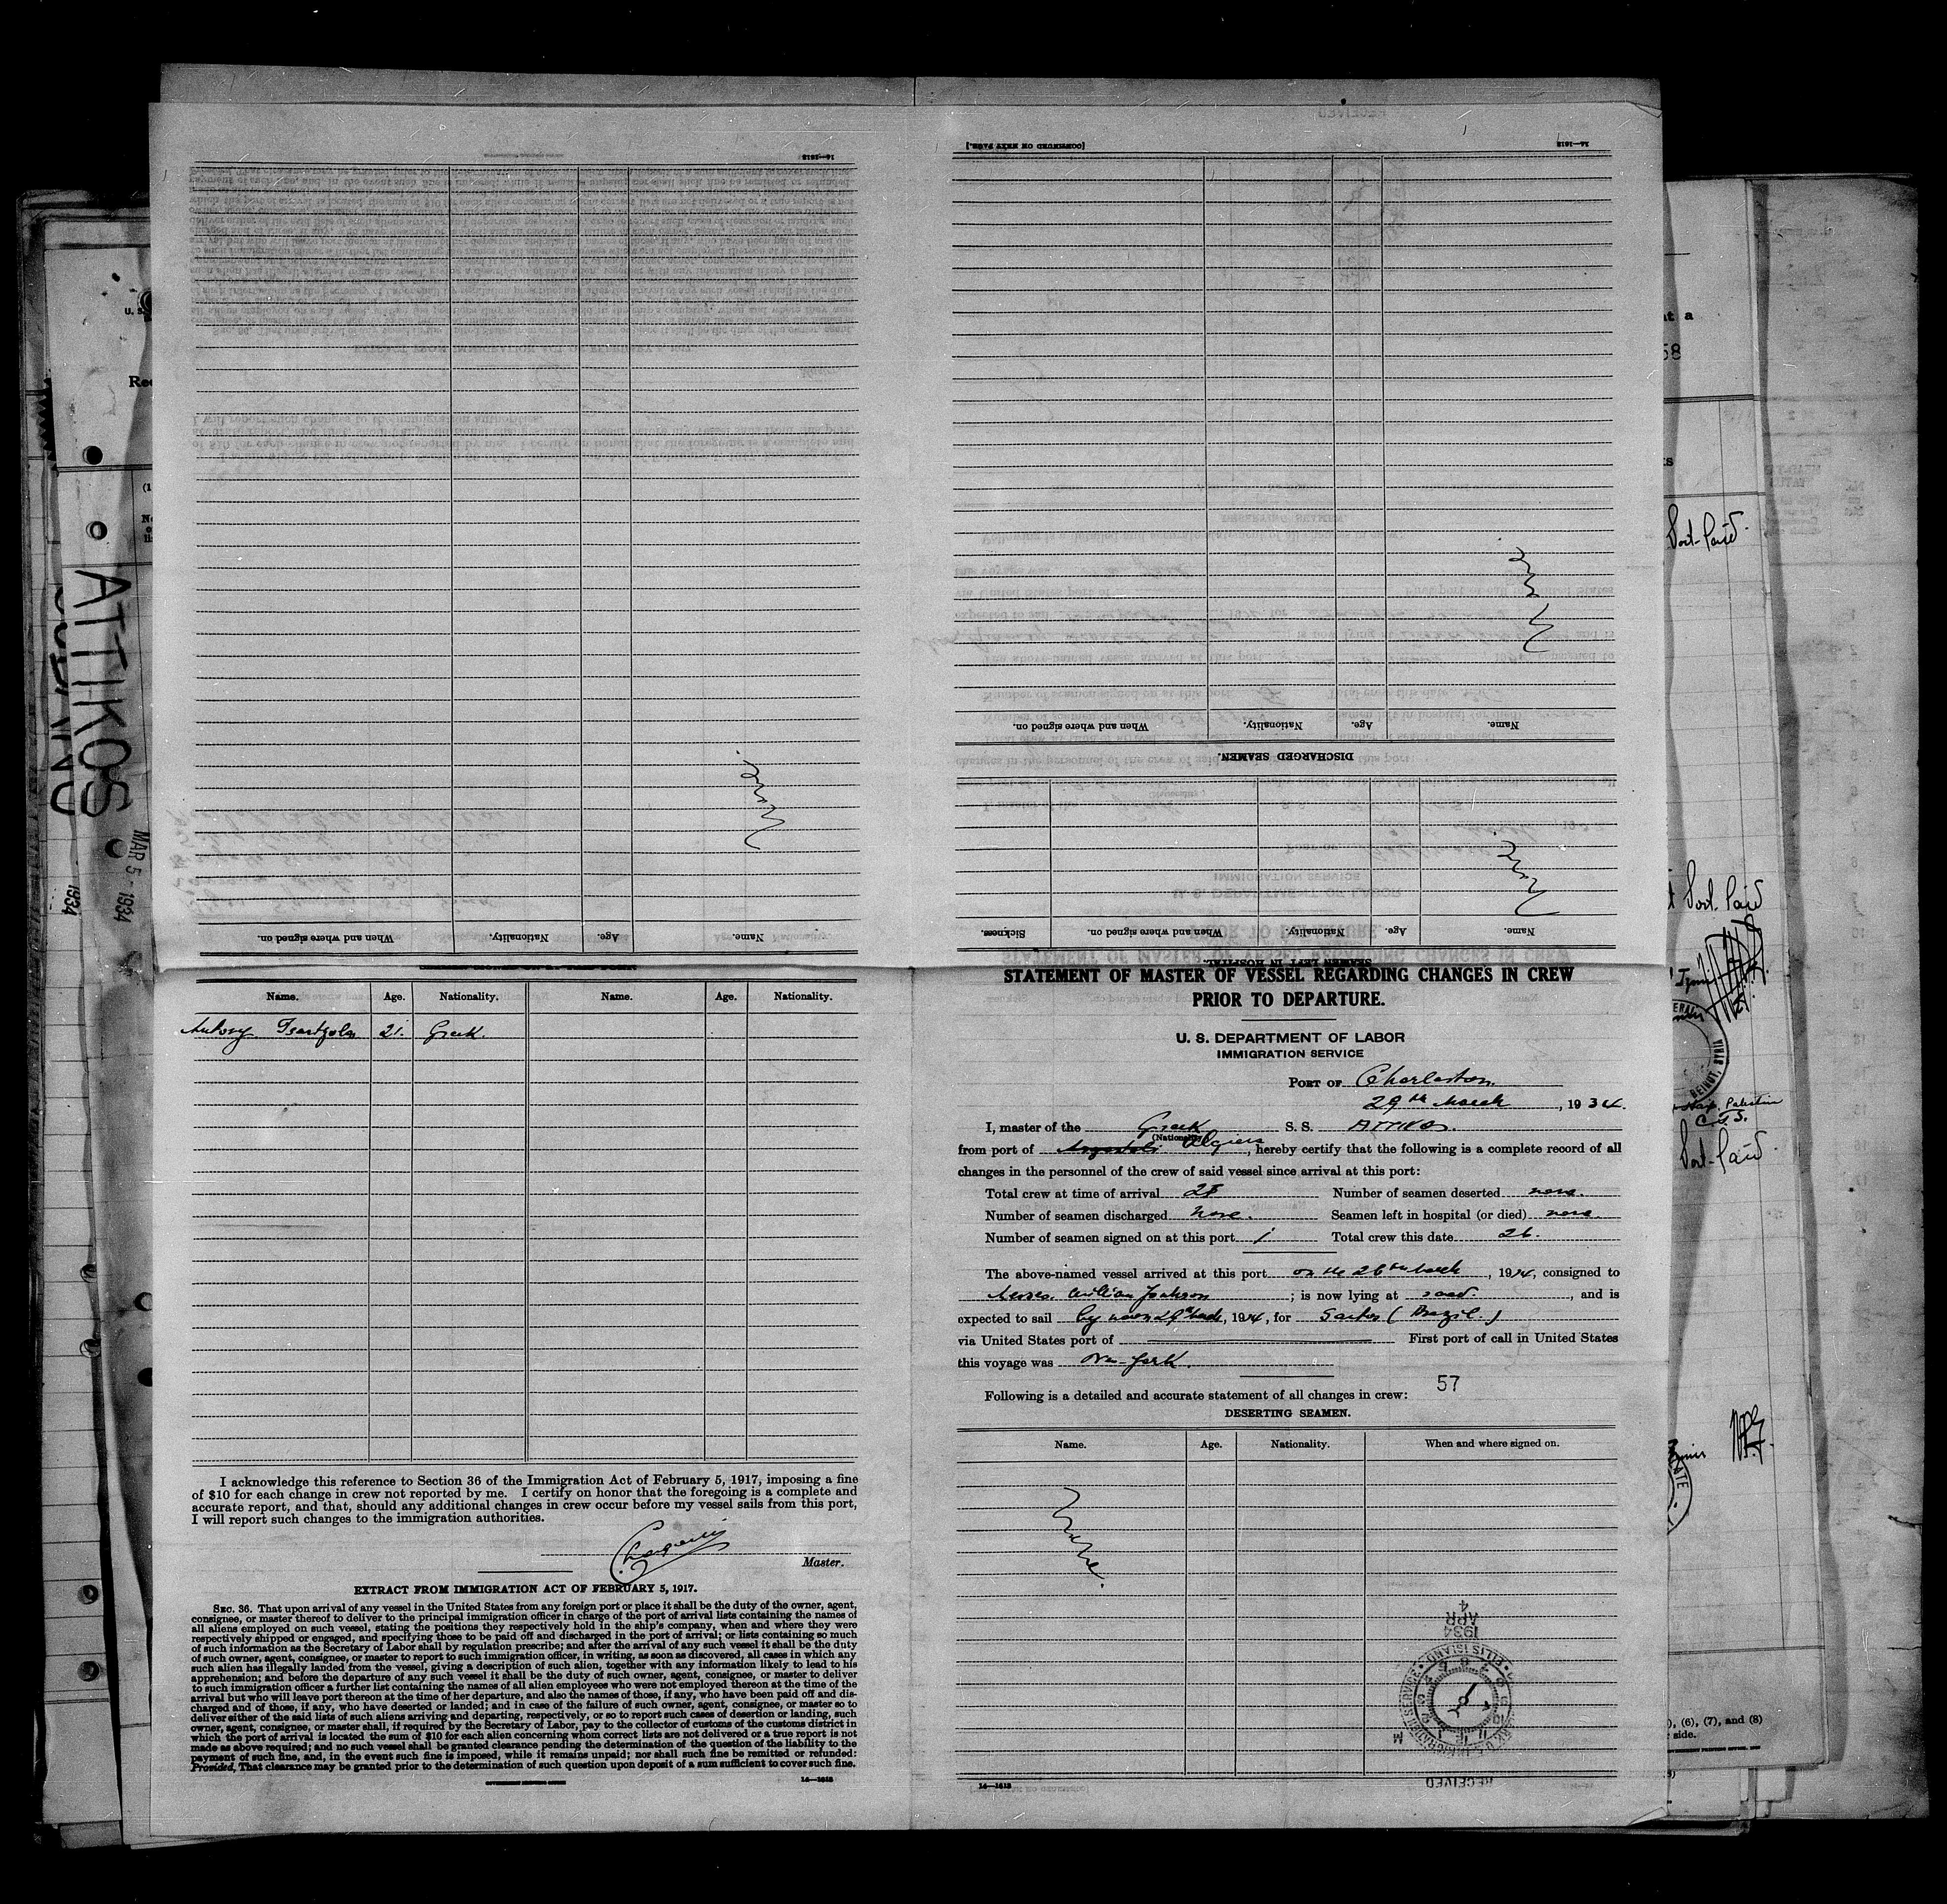 [CONTINUED ON NEXT PAGE.]
14—1618
DISCHARGED SEAMEN.
Name.
Age.
Nationality.
When and where signed on.
None.
SEAMEN LEFT IN HOSPITAL.
Name.
Age.
Nationality.
When and where signed on.
Sickness.
None.
14—1618
Name.
Age.
Nationality.
When and where signed on.
None.
ATTIKOS
MAR 5 - 1934
1934
Name. Age. Nationality. Name. Age. Nationality.
21. Greek.
I acknowledge this reference to Section 36 of the Immigration Act of February 5, 1917, imposing a fine
of $10 for each change in crew not reported by me. I certify on honor that the foregoing is a complete and
accurate report, and that, should any additional changes in crew occur before my vessel sails from this port,
I will report such changes to the immigration authorities.
Master.
EXTRACT FROM IMMIGRATION ACT OF FEBRUARY 5, 1917.
SEC. 36. That upon arrival of any vessel in the United States from any foreign port or place it shall be the duty of the owner, agent,
consignee, or master thereof to deliver to the principal immigration officer in charge of the port of arrival lists containing the names of
all aliens employed on such vessel, stating the positions they respectively hold in the ship's company, when and where they were
respectively shipped or engaged, and specifying those to be paid off and discharged in the port of arrival; or lists containing so much
of such information as the Secretary of Labor shall by regulation prescribe; and after the arrival of any such vessel it shall be the duty
of such owner, agent, consignee, or master to report to such immigration officer, in writing, as soon as discovered, all cases in which any
such alien has illegally landed from the vessel, giving a description of such alien, together with any information likely to lead to his
apprehension; and before the departure of any such vessel it shall be the duty of such owner, agent, consignee, or master to deliver
to such immigration officer a further list containing the names of all alien employees who were not employed thereon at the time of the
arrival but who will leave port thereon at the time of her departure, and also the names of those, if any, who have been paid off and dis-
charged and of those, if any, who have deserted or landed; and in case of the failure of such owner, agent, consignee, or master so to
deliver either of the said lists of such aliens arriving and departing, respectively, or so to report such cases of desertion or landing, such
owner, agent, consignee, or master shall, if required by the Secretary of Labor, pay to the collector of customs of the customs district in
which the port of arrival is located the sum of $10 for each alien concerning whom correct lists are not delivered or a true report is not
made as above required; and no such vessel shall be granted clearance pending the determination of the question of the liability to the
payment of such fine, and, in the event such fine is imposed, while it remains unpaid; nor shall such fine be remitted or refunded:
Provided, That clearance may be granted prior to the determination of such question upon deposit of a sum sufficient to cover such fine.
GOVERNMENT PRINTING OFFICE
14—1618
STATEMENT OF MASTER OF VESSEL REGARDING CHANGES IN CREW
PRIOR TO DEPARTURE.
U. S. DEPARTMENT OF LABOR
IMMIGRATION SERVICE
PORT OF Charleston
29th March, 1934.
I, master of the Greek S. S. Attikos.
(Nationality)
from port of Algiers, hereby certify that the following is a complete record of all
changes in the personnel of the crew of said vessel since arrival at this port:
Total crew at time of arrival Number of seamen deserted none.
Number of seamen discharged None. Seamen left in hospital (or died) none.
Number of seamen signed on at this port 1 Total crew this date 26.
The above-named vessel arrived at this port on the 26th March, 1934, consigned to
Messrs. William Johnson; is now lying at road, and is
expected to sail by noon 29th March, 1934, for Santos (Brazil.)
via United States port of First port of call in United States
this voyage was New-York.
57
Following is a detailed and accurate statement of all changes in crew:
DESERTING SEAMEN.
Name. Age. Nationality. When and where signed on.
None.
1934
APR
4
ELLIS ISLAND
RECEIVED
14—1618
58
Port-Said
Port-Said
BEIRUT, SYRIA
Palestine
Port-Said
(6), (7), and (8)
side.